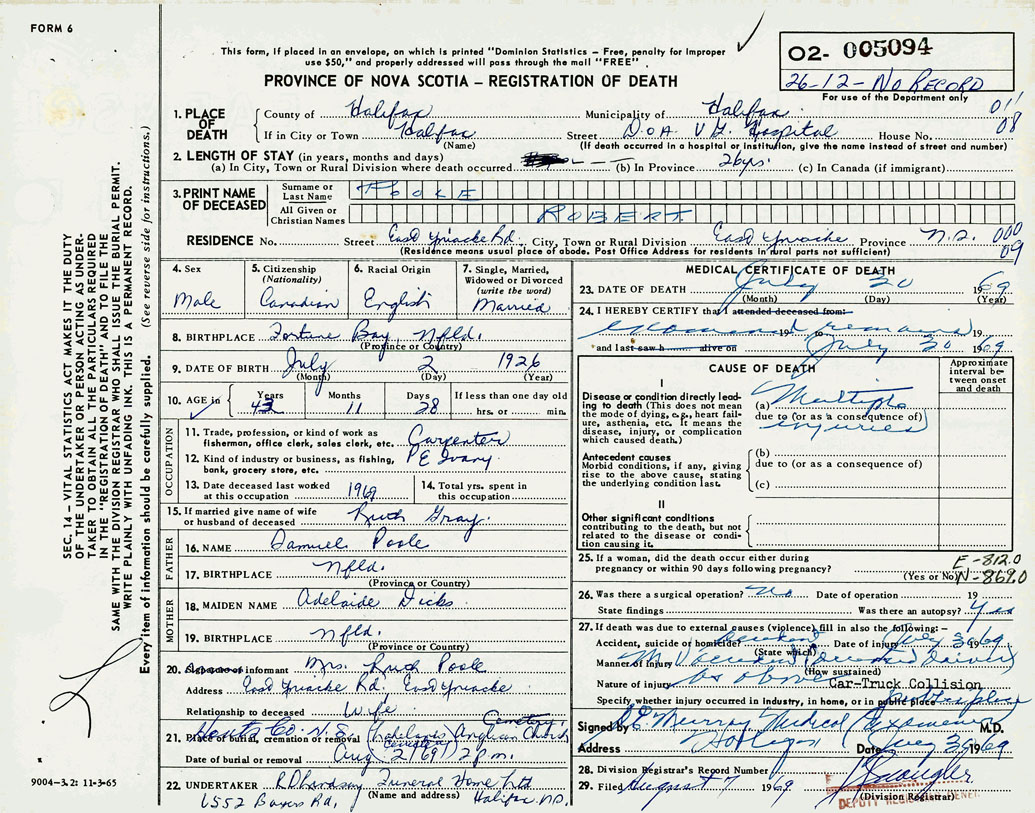 FORM 6
This form, if placed in an envelope, on which is printed "Dominion Statistics – Free, penalty for improper
use $50," and properly addressed will pass through the mail "FREE"
PROVINCE OF NOVA SCOTIA – REGISTRATION OF DEATH
O2- 005094
26-12-No RECORD
For use of the Department only
011
08
1. PLACE OF DEATH
County of Halifax Municipality of Halifax
If in City or Town Halifax Street D.O.A. V.G. Hospital House No.
(Name) (If death occurred in a hospital or institution, give the name instead of street and number)
2. LENGTH OF STAY (in years, months and days)
(a) In City, Town or Rural Division where death occurred (b) In Province 26 yrs. (c) In Canada (if immigrant)
3. PRINT NAME OF DECEASED
Surname or Last Name POOLE
All Given or Christian Names ROBERT
RESIDENCE No. Street East Uniacke Rd. City, Town or Rural Division East Uniacke Province N.S.
000
09
(Residence means usual place of abode. Post Office Address for residents in rural parts not sufficient)
4. Sex
Male
5. Citizenship
(Nationality)
Canadian
6. Racial Origin
English
7. Single, Married,
Widowed or Divorced
(write the word)
Married
8. BIRTHPLACE Fortune Bay, Nfld.
(Province or Country)
9. DATE OF BIRTH July 2 1926
(Month) (Day) (Year)
10. AGE in Years Months Days If less than one day old
43 11 28 hrs. or min.
OCCUPATION
11. Trade, profession, or kind of work as
fishermon, office clerk, sales clerk, etc. Carpenter
12. Kind of industry or business, as fishing,
bank, grocery store, etc. P E Ivany
13. Date deceased last worked
at this occupation 1969
14. Total yrs. spent in
this occupation
15. If married give name of wife
or husband of deceased Ruth Gray.
FATHER
16. NAME Samuel Poole
17. BIRTHPLACE Nfld.
(Province or Country)
MOTHER
18. MAIDEN NAME Adelaide Dicks
19. BIRTHPLACE Nfld.
(Province or Country)
20. Signature of informant Mrs. Ruth Poole
Address East Uniacke Rd. East Uniacke
Relationship to deceased Wife
21. Place of burial, cremation or removal Hants Co. N.S. Anglican Church
Cemetery.
Date of burial or removal Aug 2/69 2 p.m.
22. UNDERTAKER Funeral Home Ltd
(Name and address)
6552 Bayers Rd, Halifax N.S.
MEDICAL CERTIFICATE OF DEATH
23. DATE OF DEATH July 30 1969
(Month) (Day) (Year)
24. I HEREBY CERTIFY that I attended deceased from:
examined remains
19 to 19
and last saw h alive on July 30 1969
CAUSE OF DEATH
Approximate
interval be-
tween onset
and death
I
Disease or condition directly lead-
ing to death (This does not mean
the mode of dying, e.g., heart fail-
ure, asthenia, etc. It means the
disease, injury, or complication
which caused death.)
(a) Multiple
due to (or as a consequence of)
injuries
Antecedent causes
Morbid conditions, if any, giving
rise to the above cause, stating
the underlying condition last.
(b)
due to (or as a consequence of)
(c)
II
Other significant conditions
contributing to the death, but not
related to the disease or condi-
tion causing it.
25. If a woman, did the death occur either during
pregnancy or within 90 days following pregnancy?
(Yes or No)
E-812.0
N-869.0
26. Was there a surgical operation? No Date of operation 19
State findings Was there an autopsy? Yes
27. If death was due to external causes (violence) fill in also the following:–
Accident, suicide or homicide? Accident Date of injury July 30 1969
(State which)
Manner of injury M V accident (deceased driver)
(How sustained)
Nature of injury As above Car-Truck Collision
Specify, whether injury occurred in industry, in home, or in public place public place
Signed by Murray Medical Examiner M.D.
Address Halifax Date July 30 1969
28. Division Registrar's Record Number
29. Filed August 7 1969
(Division Registrar)
DEPUTY REGISTRAR GENERAL
SEC. 14 – VITAL STATISTICS ACT MAKES IT THE DUTY
OF THE UNDERTAKER OR PERSON ACTING AS UNDER-
TAKER TO OBTAIN ALL THE PARTICULARS REQUIRED
IN THE "REGISTRATION OF DEATH" AND TO FILE THE
SAME WITH THE DIVISION REGISTRAR WHO SHALL ISSUE THE BURIAL PERMIT.
WRITE PLAINLY WITH UNFADING INK. THIS IS A PERMANENT RECORD.
Every item of information should be carefully supplied. (See reverse side for instructions.)
9004-3.2: 11-3-65